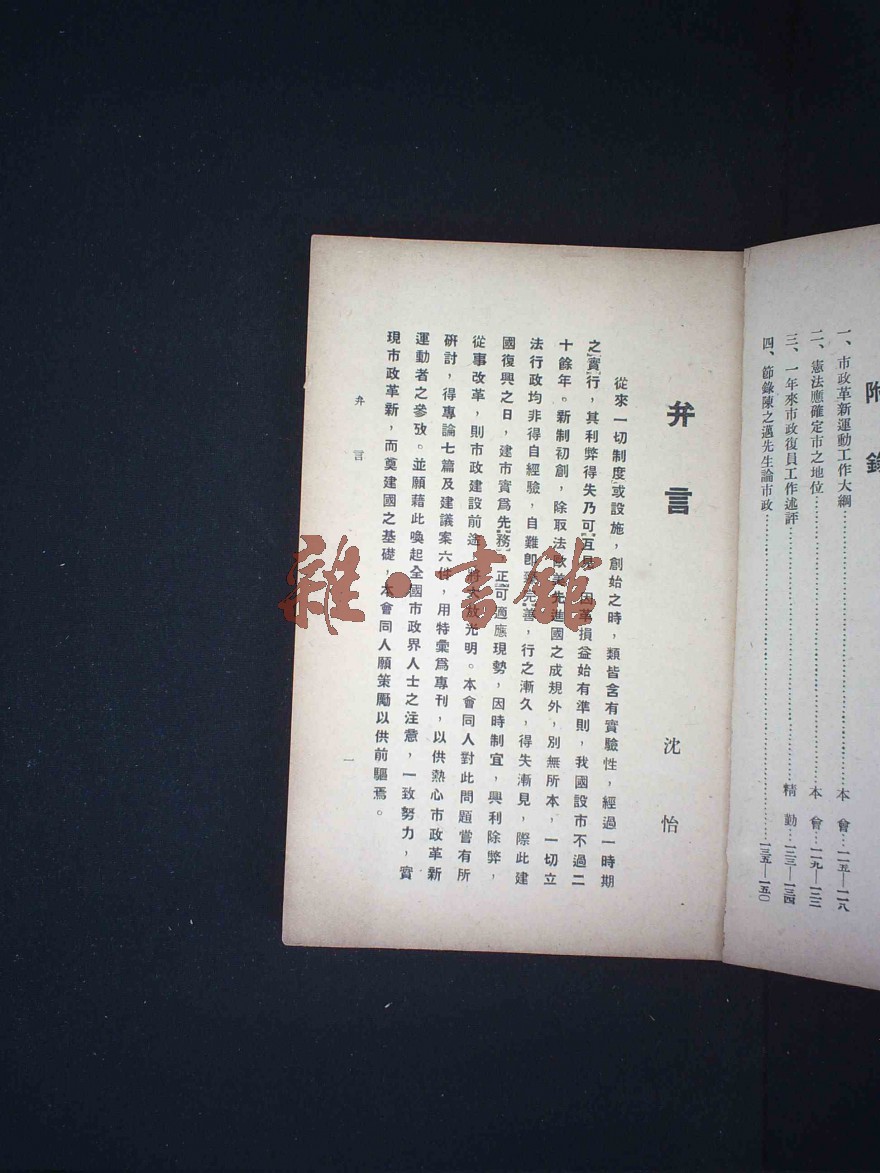 附錄
一、市政革新運動工作大綱……本會…一一五—一一八
二、憲法應確定市之地位……本會…一一九—一二二
三、一年來市政復員工作述評……精勤…一二三—一三四
四、節錄陳之邁先生論市政……一三五—一五〇
弁言
沈怡
從來一切制度或設施，創始之時，類皆含有實驗性，經過一時期
之實行，其利弊得失乃可互見，因革損益始有準則，我國設市不過二
十餘年。新制初創，除取法歐美先進國之成規外，別無所本，一切立
法行政均非得自經驗，自難卽臻完善，行之漸久，得失漸見，際此建
國復興之日，建市實爲先務，正可適應現勢，因時制宜，興利除弊，
從事改革，則市政建設前途，將大放光明。本會同人對此問題嘗有所
硏討，得專論七篇及建議案六件，用特彙爲專刊，以供熱心市政革新
運動者之參攷。並願藉此喚起全國市政界人士之注意，一致努力，實
現市政革新，而奠建國之基礎，本會同人願策勵以供前驅焉。
弁言
一
雜·書館